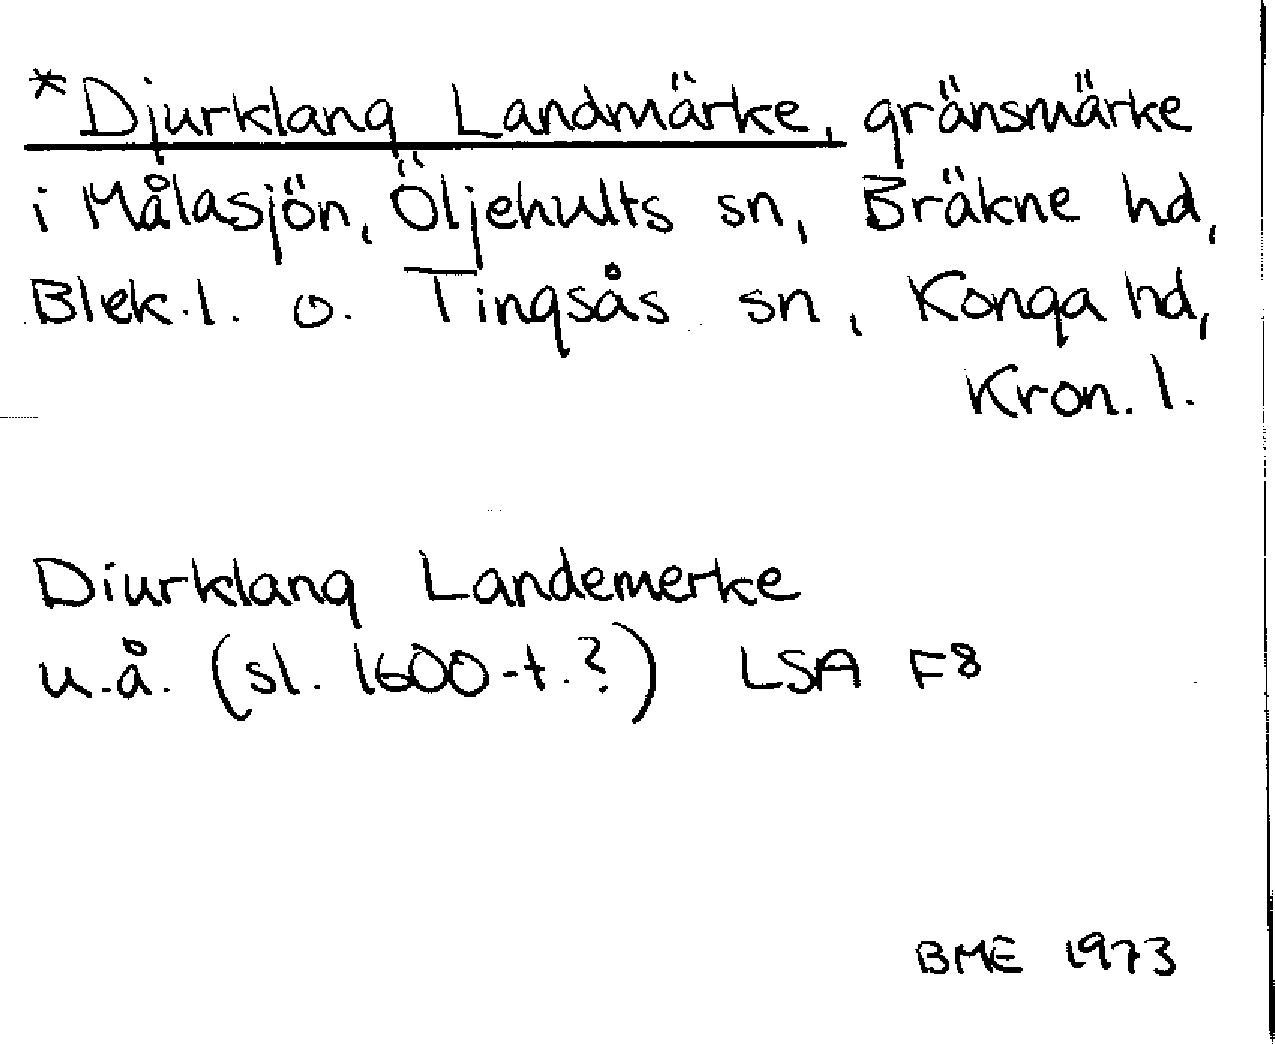 *Djurklang Landmärke, gränsmärke
i Målasjön, Öljehults sn, Bräkne hd,
Blek. l. o. Tingsås sn, Konga hd,
Kron. l.
Diurklang Landemerke
u.å. (sl. 1600-t.?) LSA F8
BME 1973